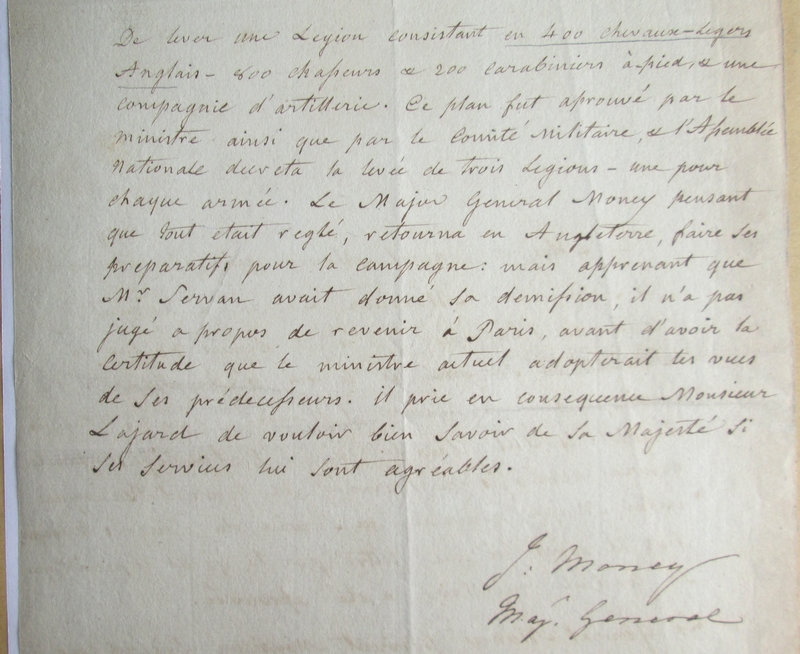 De lever une Legion consistant en 400 chevaux-Legers
Anglais - 800 chasseurs & 200 carabiniers à-pied, & une
compagnie d'artillerie. Ce plan fut aprouvé par le
ministre ainsi que par le Comité Militaire, & l'Assemblée
Nationale decreta la levée de trois Legions - une pour
chaque armée. Le Major General Money pensant
que tout etait reglé, retourna en Angleterre, faire ses
préparatifs pour la campagne: mais apprenant que
Mr Servan avait donné sa demission, il n'a pas
jugé a propos de revenir à Paris, avant d'avoir la
certitude que le ministre actuel adopterait les vues
de ses prédecesseurs. il prie en consequence Monsieur
Lajard de vouloir bien savoir de sa Majesté si
ses services lui sont agréables.
J: Money
Maj. General